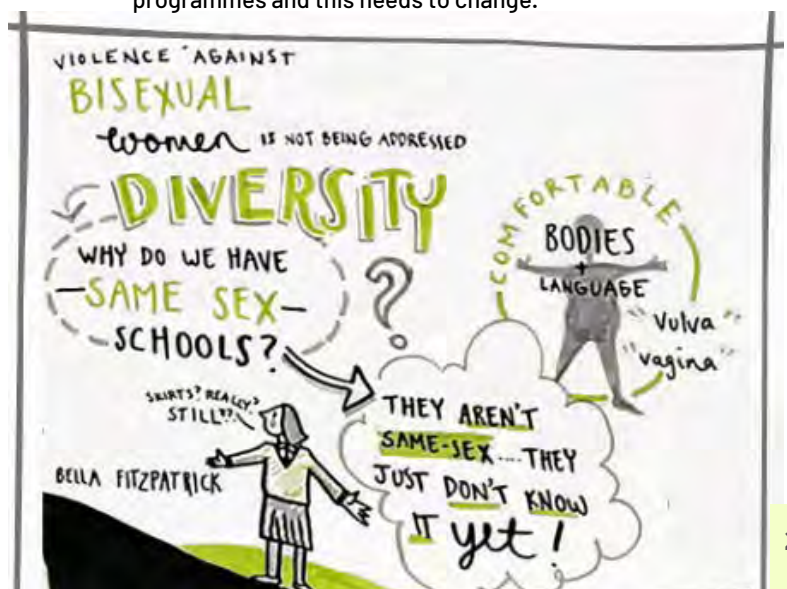 programmes and this needs to change.
VIOLENCE AGAINST
BISEXUAL
women IS NOT BEING ADDRESSED
DIVERSITY
?
WHY DO WE HAVE
SAME SEX
SCHOOLS?
COMFORTABLE
BODIES
+
LANGUAGE
"Vulva"
"vagina"
SKIRTS? REALLY?
STILL??
BELLA FITZPATRICK
THEY AREN'T
SAME-SEX....THEY
JUST DON'T KNOW
IT yet!